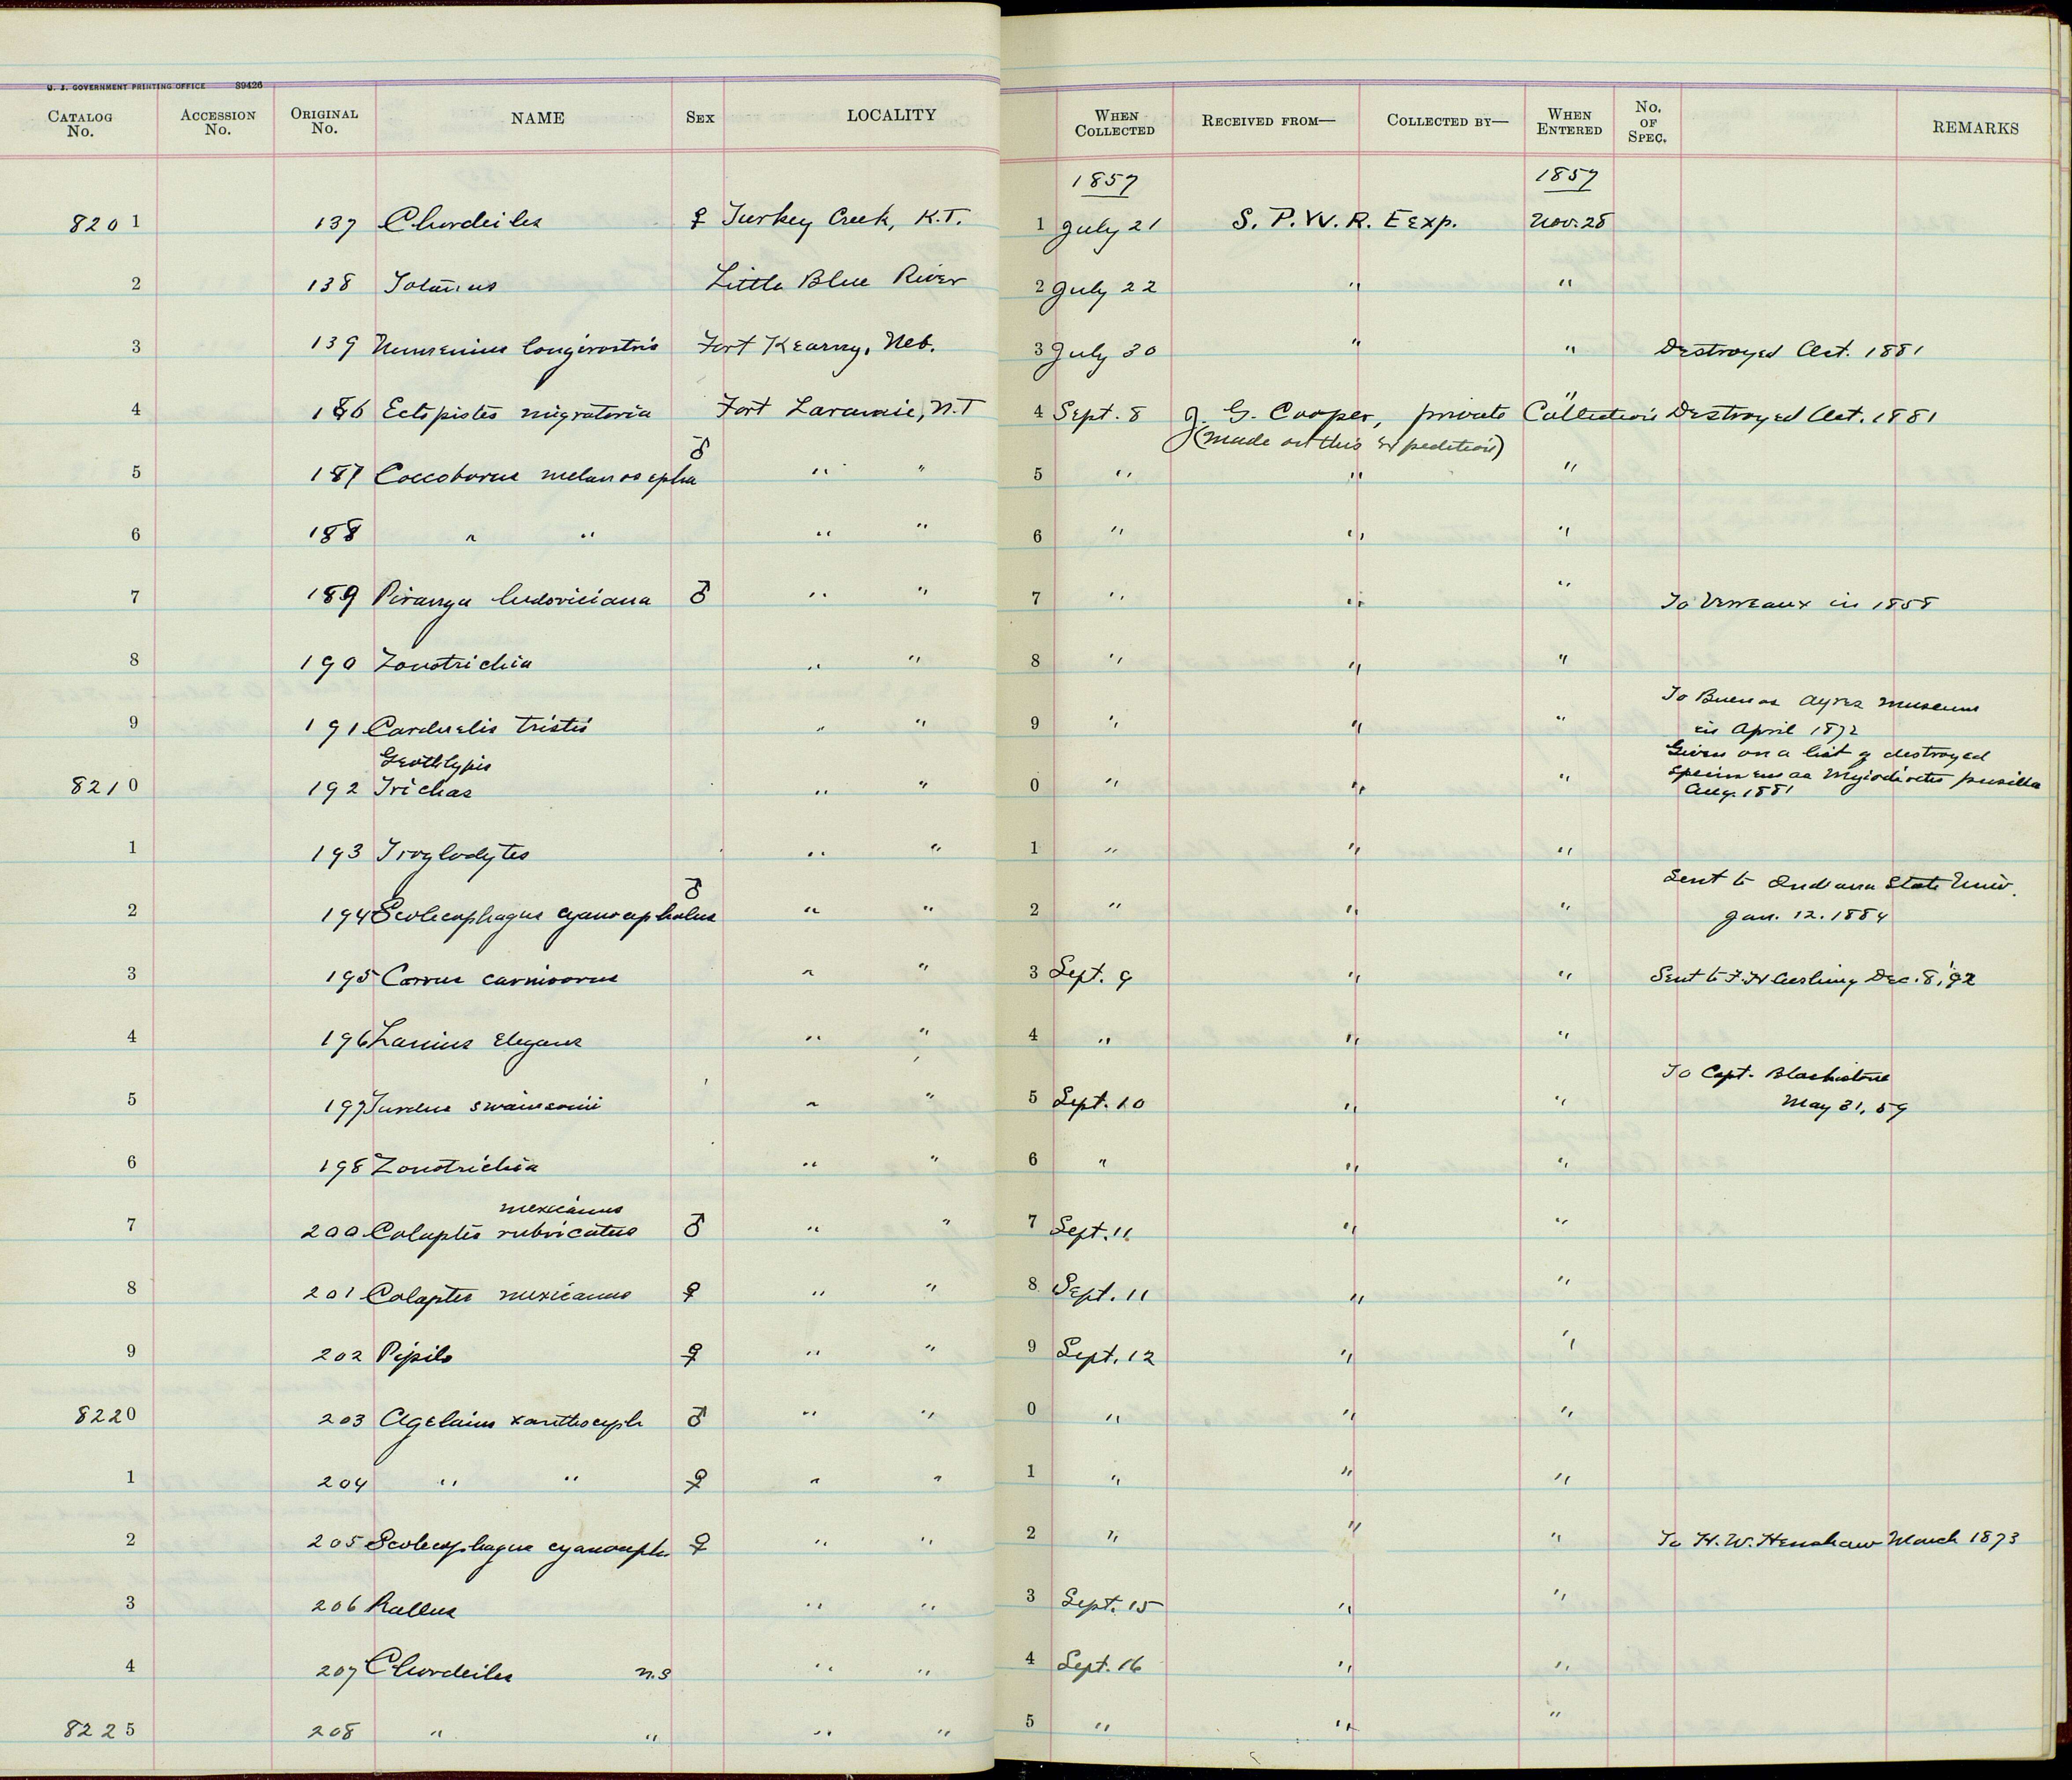 U. S. GOVERNMENT PRINTING OFFICE 89426
CATALOG No. ACCESSION No. ORIGINAL No. NAME SEX LOCALITY WHEN COLLECTED RECEIVED FROM— COLLECTED BY— WHEN ENTERED No. OF SPEC. REMARKS
1857 1857
8201 137 Chordeiles ♀ Turkey Creek, K.T. 1 July 21 S. P. W. R. E Exp. Nov. 28
2 138 Totanus Little Blue River 2 July 22 " "
3 139 Numenius longirostris Fort Kearny, Neb. 3 July 30 " " Destroyed Oct. 1881
4 186 Ectopistes migratoria Fort Laramie, N.T 4 Sept. 8 J. G. Cooper, private Collection " Destroyed Oct. 1881
(made on this Expedition)
5 187 Coccoborus melanocepha ♂ " " 5 " " "
6 188 " " " " 6 " " "
7 189 Piranga ludoviciana ♂ " " 7 " " " To Verreaux in 1858
8 190 Zonotrichia " " 8 " " "
9 191 Carduelis tristis " " 9 " " " To Buenos Ayres Museum
in April 1872
Geothlypis
8210 192 Trichas " " 0 " " " Given on a list of destroyed
specimens as Myiodioctes pusilla
Aug. 1881
1 193 Troglodytes " " 1 " " "
2 194 Scolecophagus cyanocephalus ♂ " " 2 " " " Sent to Indiana State Univ.
Jan. 12. 1884
3 195 Corvus carnivorus " " 3 Sept. 9 " " Sent to F. H Cushing Dec. 8, '92
4 196 Lanius elegans " " 4 " " "
5 197 Turdus swainsonii " " 5 Sept. 10 " " To Capt. Blackistone
May 31, 59
6 198 Zonotrichia " " 6 " " "
mexicanus
7 200 Colaptes rubricatus ♂ " " 7 Sept. 11 " "
8 201 Colaptes mexicanus ♀ " " 8 Sept. 11 " "
9 202 Pipilo ♀ " " 9 Sept. 12 " "
8220 203 Agelaius xanthoceph ♂ " " 0 " " "
1 204 " " ♀ " " 1 " " "
2 205 Scolecophagus cyanoceph ♀ " " 2 " " " To H. W. Henshaw March 1873
3 206 Rallus " " 3 Sept. 15 " "
4 207 Chordeiles n.s " " 4 Sept. 16 " "
8225 208 " " " " 5 " " "